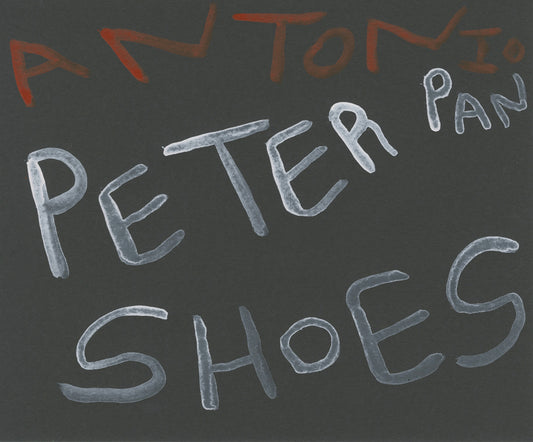 ANTONIO
PETER PAN
SHOES